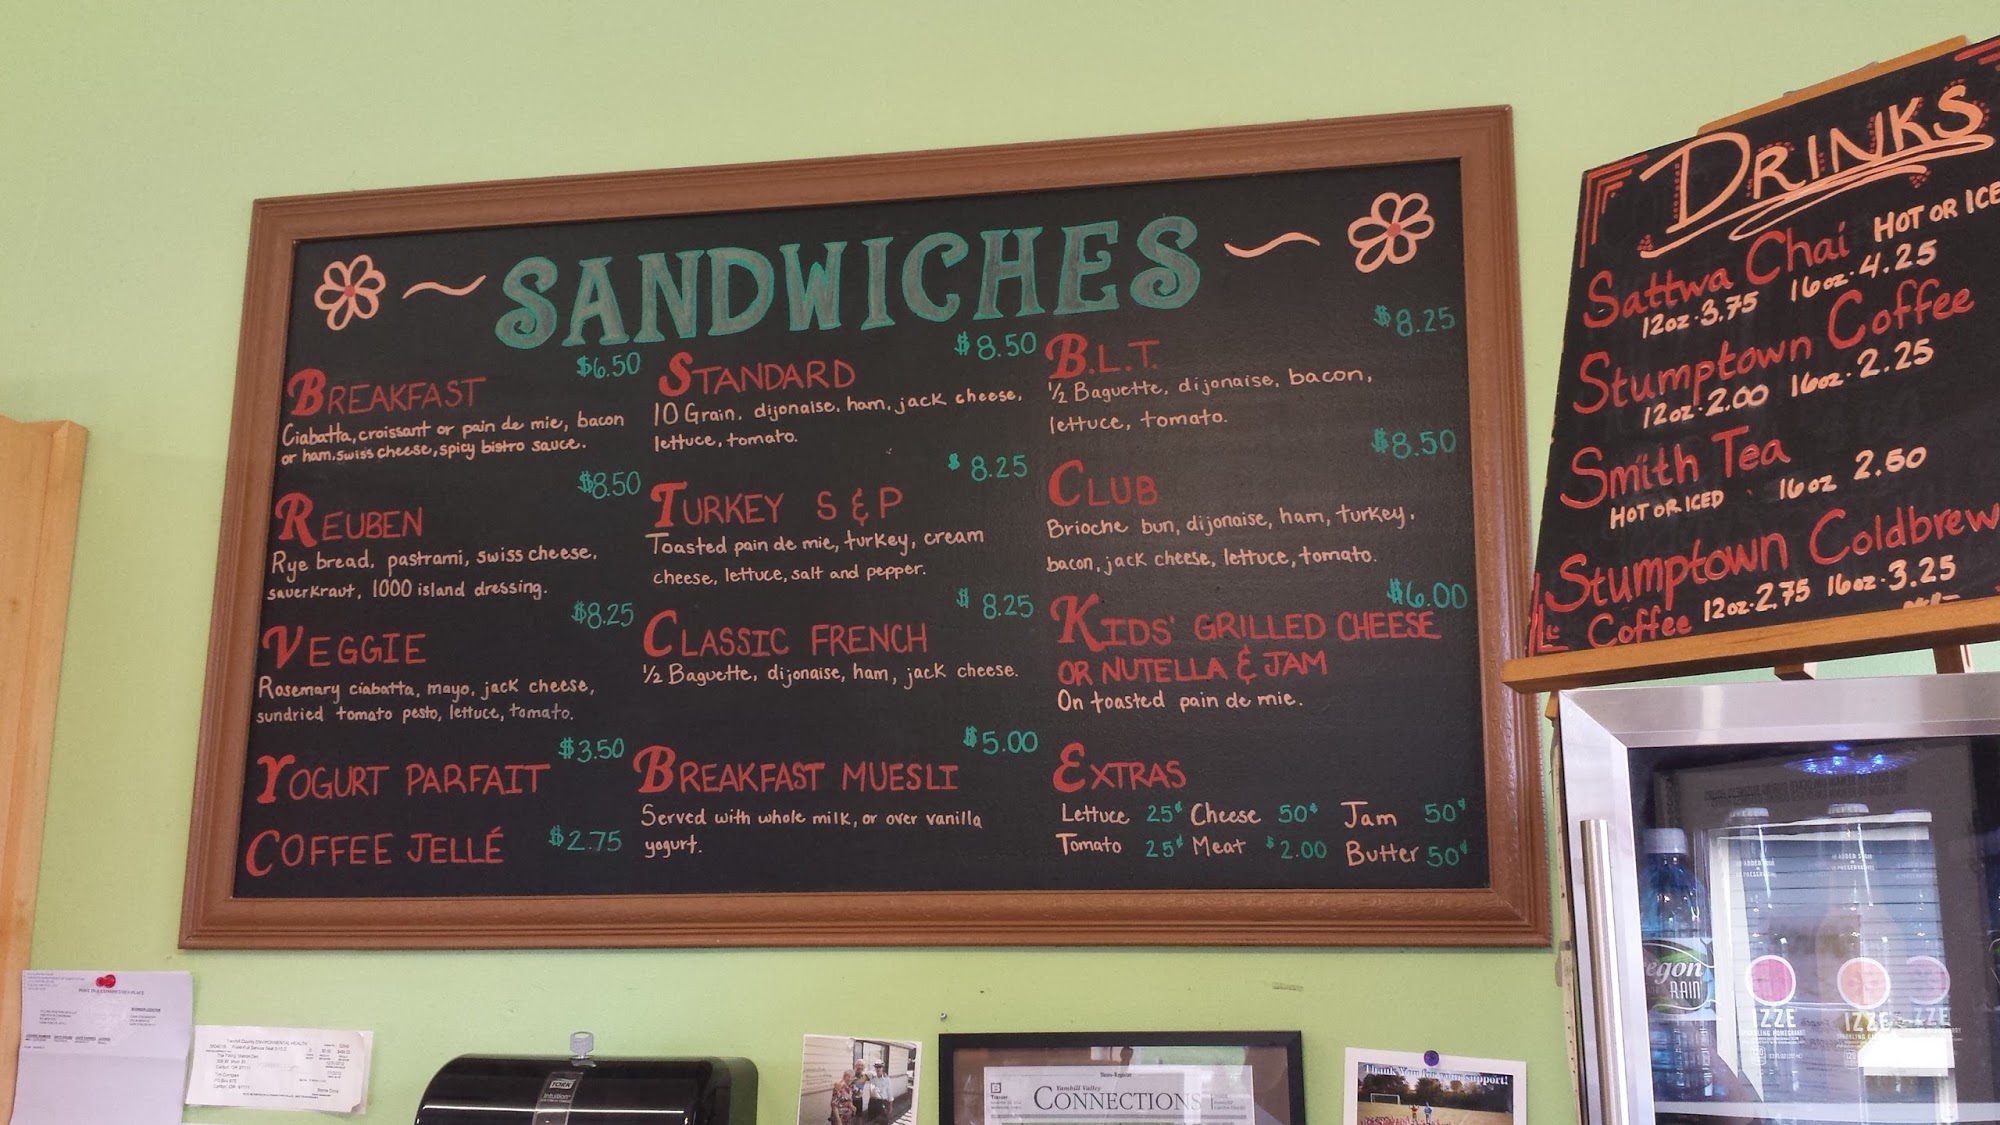 SANDWICHES
BREAKFAST $6.50
Ciabatta, croissant or pain de mie, bacon
or ham, swiss cheese, spicy bistro sauce.
REUBEN $8.50
Rye bread, pastrami, swiss cheese,
sauerkraut, 1000 island dressing.
VEGGIE $8.25
Rosemary ciabatta, mayo, jack cheese,
sundried tomato pesto, lettuce, tomato.
YOGURT PARFAIT $3.50
COFFEE JELLÉ $2.75
STANDARD $8.50
10 Grain, dijonaise, ham, jack cheese,
lettuce, tomato.
TURKEY S & P $8.25
Toasted pain de mie, turkey, cream
cheese, lettuce, salt and pepper.
CLASSIC FRENCH $8.25
1/2 Baguette, dijonaise, ham, jack cheese.
BREAKFAST MUESLI $5.00
Served with whole milk, or over vanilla
yogurt.
B.L.T. $8.25
1/2 Baguette, dijonaise, bacon,
lettuce, tomato.
CLUB $8.50
Brioche bun, dijonaise, ham, turkey,
bacon, jack cheese, lettuce, tomato.
KIDS' GRILLED CHEESE $6.00
OR NUTELLA & JAM
On toasted pain de mie.
EXTRAS
Lettuce 25¢ Cheese 50¢ Jam 50¢
Tomato 25¢ Meat $2.00 Butter 50¢
DRINKS
Sattwa Chai HOT OR ICE
12oz · 3.75 16oz · 4.25
Stumptown Coffee
12oz · 2.00 16oz · 2.25
Smith Tea
HOT OR ICED 16oz 2.50
Stumptown Coldbrew
Coffee 12oz · 2.75 16oz · 3.25
egon
RAIN
IZZE
IZZE
ZZE
TORK
Intuition
Yamhill Valley
CONNECTIONS
Thank You for your support!